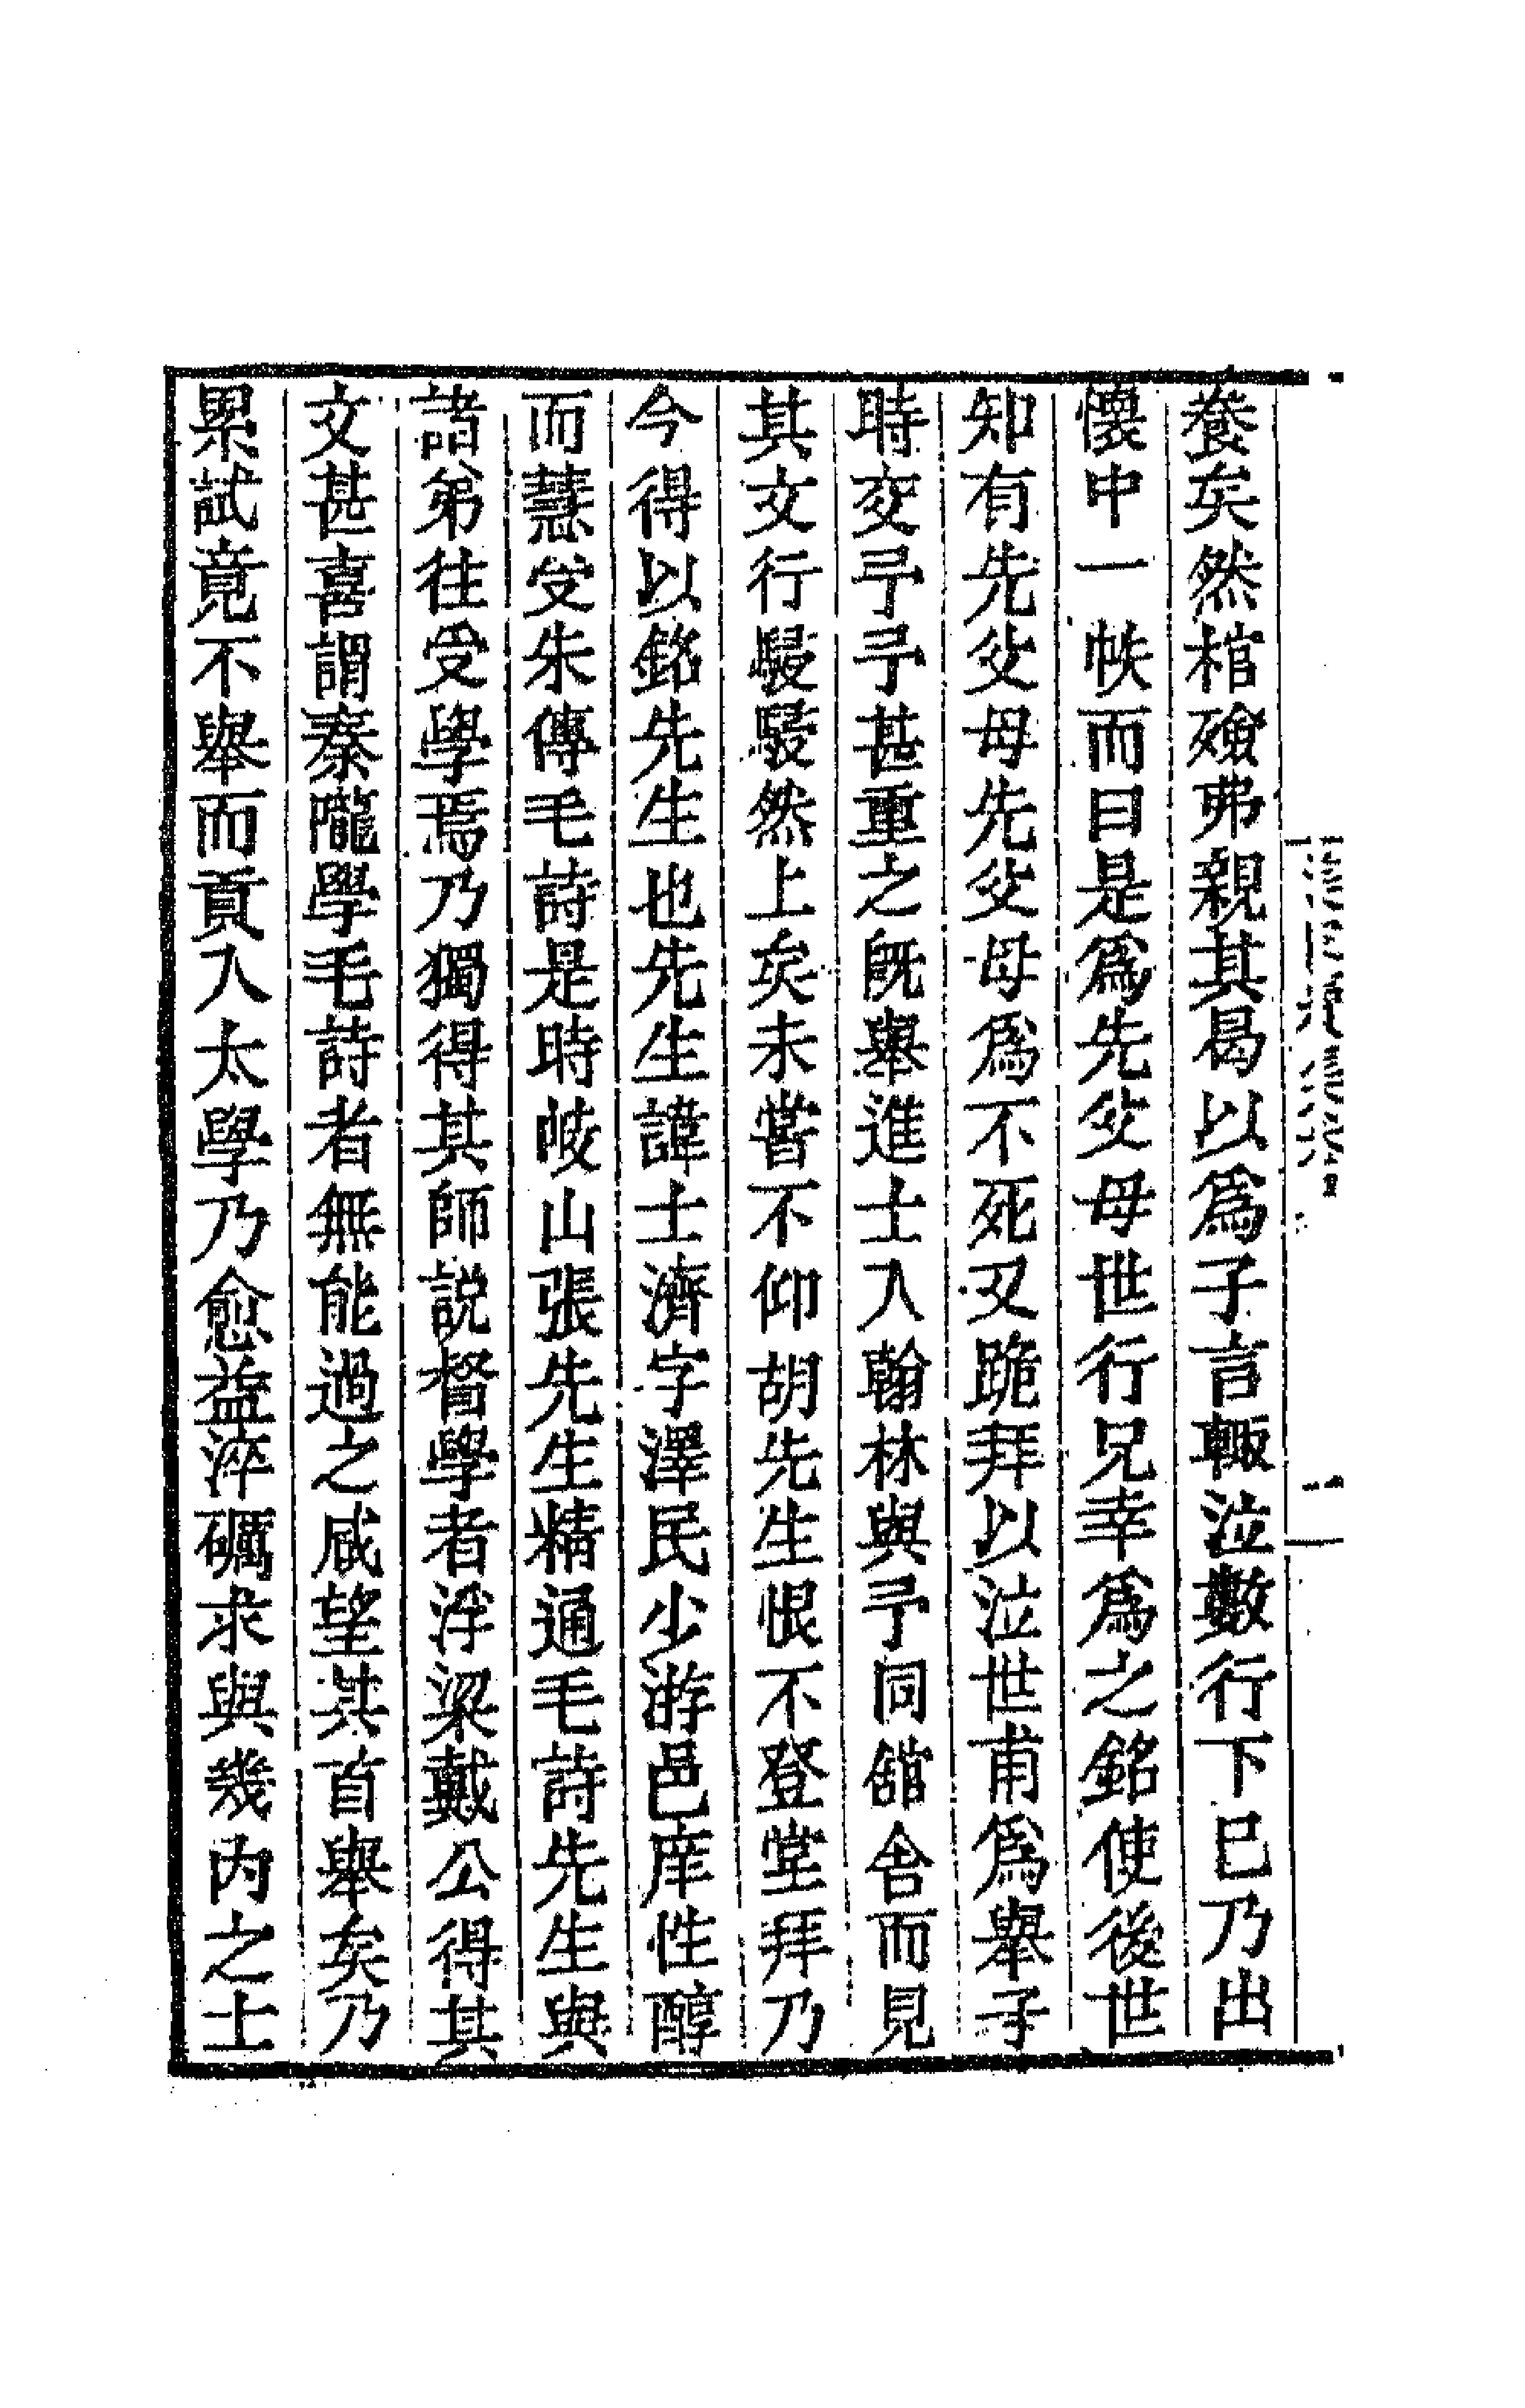 養矣然棺殮弗親其曷以爲子言輙泣數行下已乃出
懷中一帙而曰是爲先父母世行兄幸爲之銘使後世
知有先父母先父母爲不死又跪拜以泣世甫爲舉子
時交予予甚重之旣舉進士入翰林與予同舘舍而見
其文行駸駸然上矣未嘗不仰胡先生恨不登堂拜乃
今得以銘先生也先生諱士濟字澤民少游邑庠性醇
而慧受朱傳毛詩是時岐山張先生精通毛詩先生與
諸弟往受學焉乃獨得其師説督學者浮梁戴公得其
文甚喜謂秦隴學毛詩者無能過之咸望其首舉矣乃
累試竟不舉而貢入太學乃愈益淬礪求與幾内之士